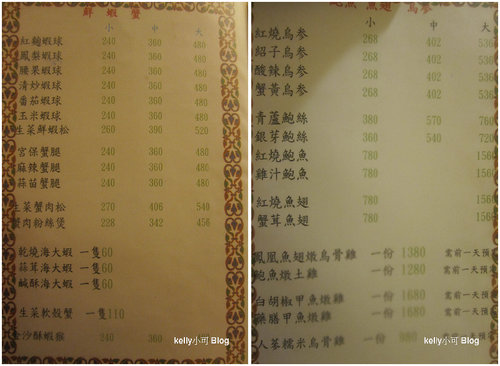 鮮 蝦 蟹
小 中 大
紅麴蝦球 240 360 480
鳳梨蝦球 240 360 480
腰果蝦球 240 360 480
清炒蝦球 240 360 480
番茄蝦球 240 360 480
玉米蝦球 240 360 480
生菜鮮蝦松 260 390 520
宮保蟹腿 240 360 480
麻辣蟹腿 240 360 480
蒜苗蟹腿 240 360 480
生菜蟹肉松 270 406 540
蟹肉粉絲煲 228 342 456
乾燒海大蝦 一隻60
蒜茸海大蝦 一隻60
鹹酥海大蝦 一隻60
生菜軟殼蟹 一隻110
金沙酥蝦猴 240 360 480
kelly小可 Blog
鮑魚 魚翅 烏參
小 中 大
紅燒烏參 268 402 536
紹子烏參 268 402 536
酸辣烏參 268 402 536
蟹黃烏參 268 402 536
青蘆鮑絲 380 570 760
銀芽鮑絲 360 540 720
紅燒鮑魚 780 1560
雞汁鮑魚 780 1560
紅燒魚翅 780 1560
蟹茸魚翅 780 1560
鳳凰魚翅燉烏骨雞 一份 1380 需前一天預
鮑魚燉土雞 一份 1280 需前一天預
白胡椒甲魚燉雞 一份 1680 需前一天預
藥膳甲魚燉雞 一份 1680 需前一天預
人蔘糯米烏骨雞 一份 980 需前一天預
kelly小可 Blog